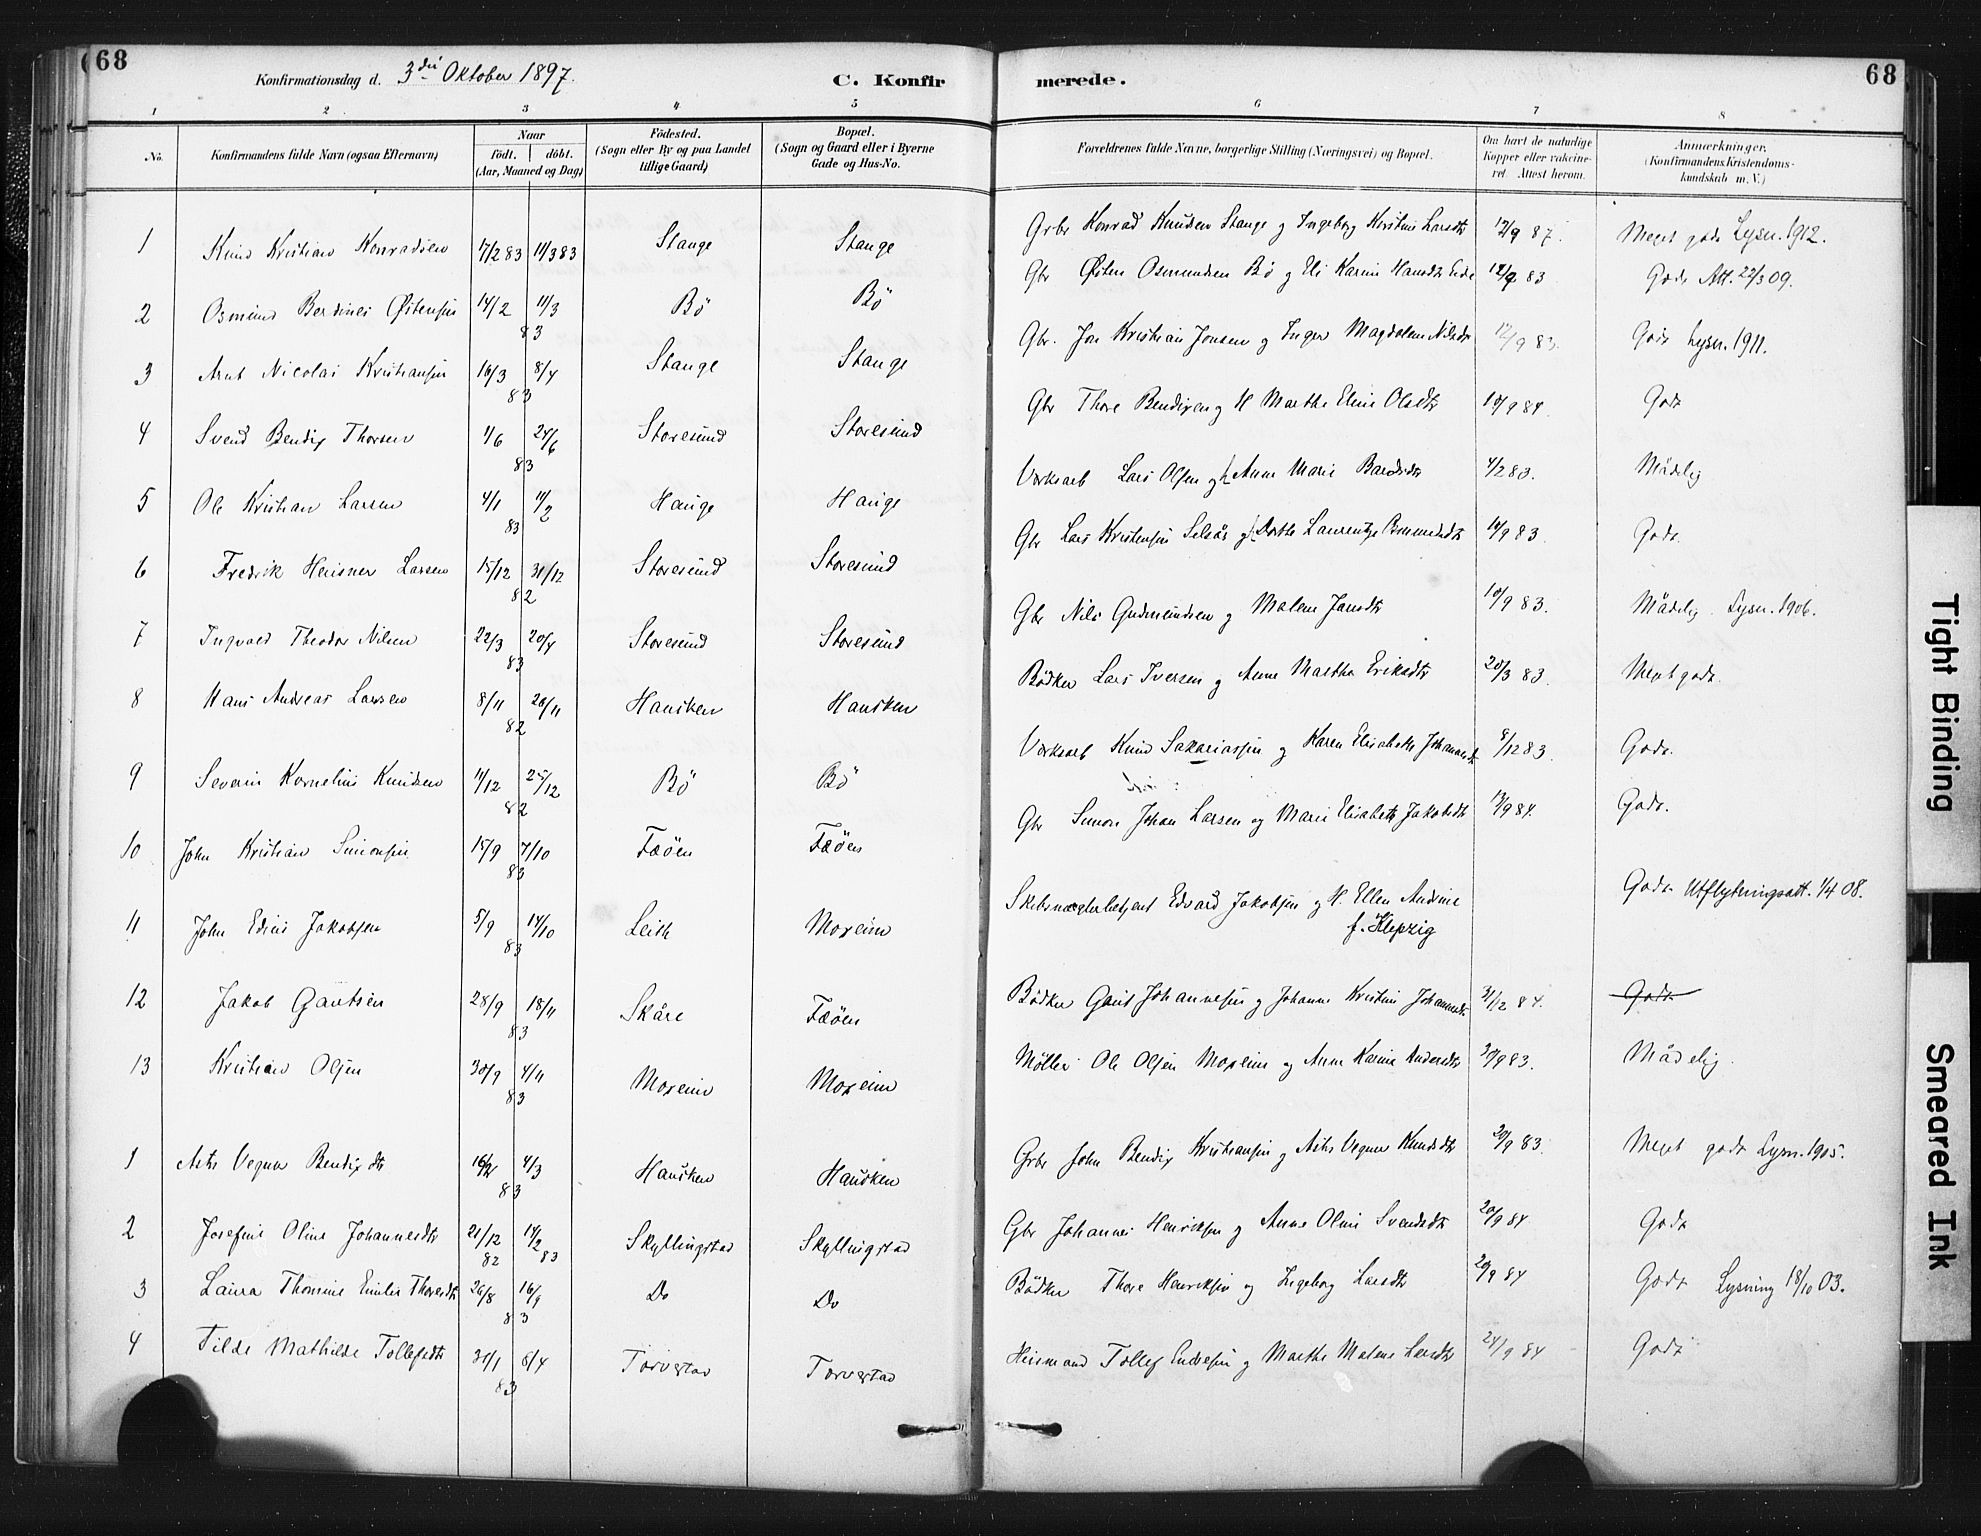 68
Konfirmationsdag d. 3die Oktober 1897.
C. Konfir merede.
68
1 2 3 4 5 6 7 8
No.
Konfirmandens fulde Navn (ogsaa Efternavn)
Naar
födt. döbt.
(Aar, Maaned og Dag)
Födested.
(Sogn eller By og paa Landet
tillige Gaard)
Bopæl.
(Sogn og Gaard eller i Byerne
Gade og Hus-No.
Forældrenes fulde Navne, borgerlige Stilling (Næringsvei) og Bopæl.
Om havt de naturlige
Kopper eller vakcine-
ret. Attest herom.
Anmærkninger.
(Konfirmandens Kristendoms-
kundskab m. V.)
1 Knud Kristian Konradsen 17/2 83 11/3 83 Stange Stange Grbr Konrad Knudsen Stange og Ingeborg Kirstine Larsdtr 12/9 87. Meget godt Lysn. 1912.
2 Osmund Berdines Østensen 14/2 11/3 83 Bö Bö Gbr Østen Osmundsen Bö og Karine Hansdtr 12/9 83 Godt Att. 22/3 09.
3 Arnt Nicolai Kristiansen 16/3 8/4 83 Stange Stange Gbr. Jon Kristian Jonsen og Inger Magdalene Nilsdtr 12/9 83. Godt Lysn. 1911.
4 Svend Bendix Thorsen 1/6 24/6 83 Storesund Storesund Gbr Thore Bendixen og H Marthe Eline Olsdtr 10/9 84. Godt
5 Ole Kristian Larsen 4/1 11/2 83 Hauge Hauge Værksarb Lars Olsen og H Anne Marie Bardsdtr 4/2 83. Mådelig
6 Fredrik Heisner Larsen 15/12 31/12 82 Storesund Storesund Gbr Lars Kristensen Selsås og H Dorthe Laurentze 14/9 83 Godt.
7 Ingvald Theodor Nilsen 22/3 20/4 83 Storesund Storesund Gbr Nils Gudmundsen og Malene Jansdtr 10/9 83. Mådelig Lysn. 1906.
8 Hans Andreas Larsen 8/11 26/11 82 Hausken Hausken Bödker Lars Iversen og Anne Marthe Eriksdtr 20/3 83. Meget godt.
9 Severin Kornelius Knudsen 11/12 25/12 82 Bö Bö Værksarb Knud Sakariassen og Karen Elisabeth Johannesdtr 8/12 83. Godt.
10 John Kristian Simonsen 15/9 7/10 83 Fæöen Fæöen Gbr Simon Johan Larsen og Marie Elisabeth Jakobsdtr 13/9 84. Godt.
11 John Edius Jakobsen 5/9 14/10 83 Leith Moxeim Skibsmæglerbetjent Edvard Jakobsen og H. Ellen Andrine
f. Klepzig Godt Utflytningsatt. 1/4 08.
12 Jakob Gautsen 28/9 18/11 83 Skåre Fæöen Bödker Gaut Johannesen og Johanne Kristine Johannesdtr 31/12 84. Godt
13 Kristian Olsen 30/9 4/11 83 Moxeim Moxeim Møller Ole Olsen Moxeim og Anne Karine Andersdtr 20/9 83. Mådelig.
1 Asta Vegna Bendixdtr 16/2 4/3 83 Hausken Hausken Grbr John Bendix Kristiansen og Asta Vegna Knudsdtr 20/9 83. Meget godt Lysn. 1905.
2 Josefine Oline Johannesdtr 21/12 82 14/2 83 Skyllingstad Skyllingstad Gbr Johannes Henriksen og Anne Oline Svendsdtr 20/9 84 Godt
3 Laura Thomine Emilie Thoresdtr 26/8 16/9 83 Do Do Bödker Thore Henriksen og Ingeborg Larsdtr 20/9 84 Godt Lysning 18/10 03.
4 Tilde Mathilde Tollefsdtr 31/1 8/4 83 Torvestad Torvestad Huusmand Tollef Endresen og Marthe Malene Larsdtr 24/9 84 Godt
Tight Binding
Smeared Ink